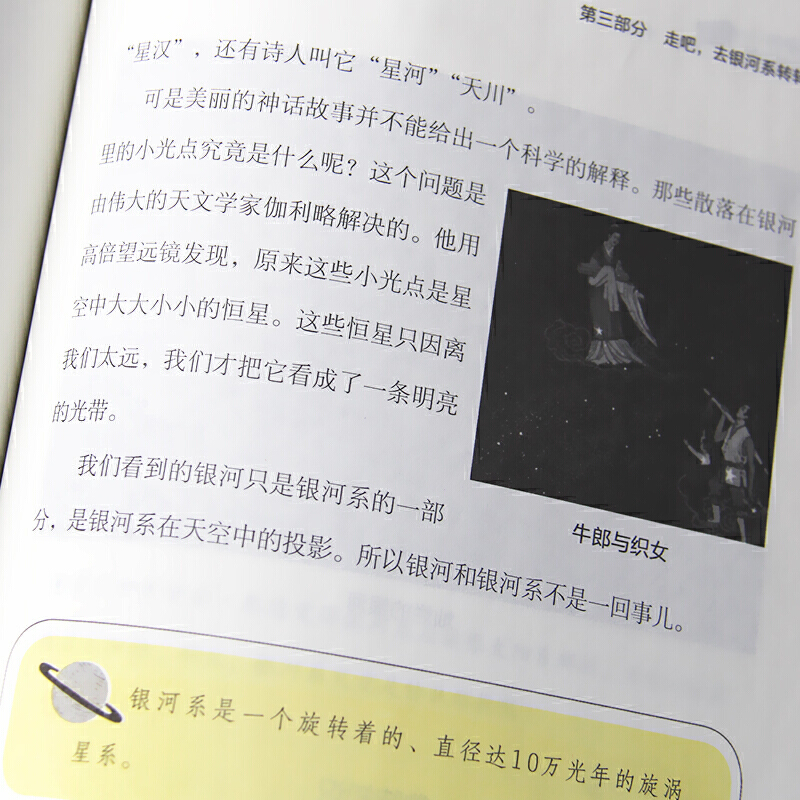 第三部分 走吧，去银河系转转
“星汉”，还有诗人叫它“星河”“天川”。
可是美丽的神话故事并不能给出一个科学的解释。那些散落在银河
里的小光点究竟是什么呢？这个问题是
由伟大的天文学家伽利略解决的。他用
高倍望远镜发现，原来这些小光点是星
空中大大小小的恒星。这些恒星只因离
我们太远，我们才把它看成了一条明亮
的光带。
牛郎与织女
我们看到的银河只是银河系的一部
分，是银河系在天空中的投影。所以银河和银河系不是一回事儿。
银河系是一个旋转着的、直径达10万光年的旋涡
星系。